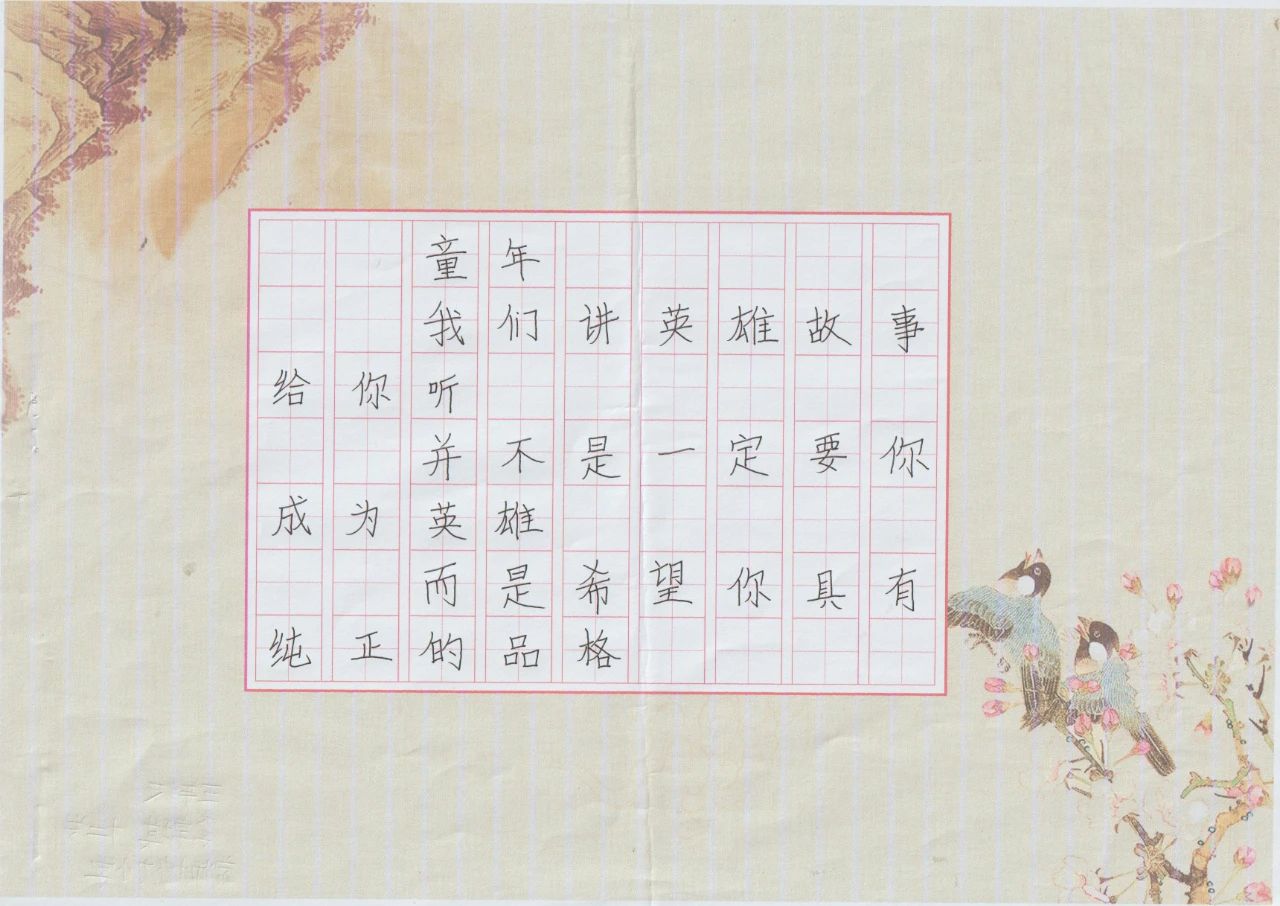 童年
我们讲英雄故事
给你听
并不是一定要你
成为英雄
而是希望你具有
纯正的品格